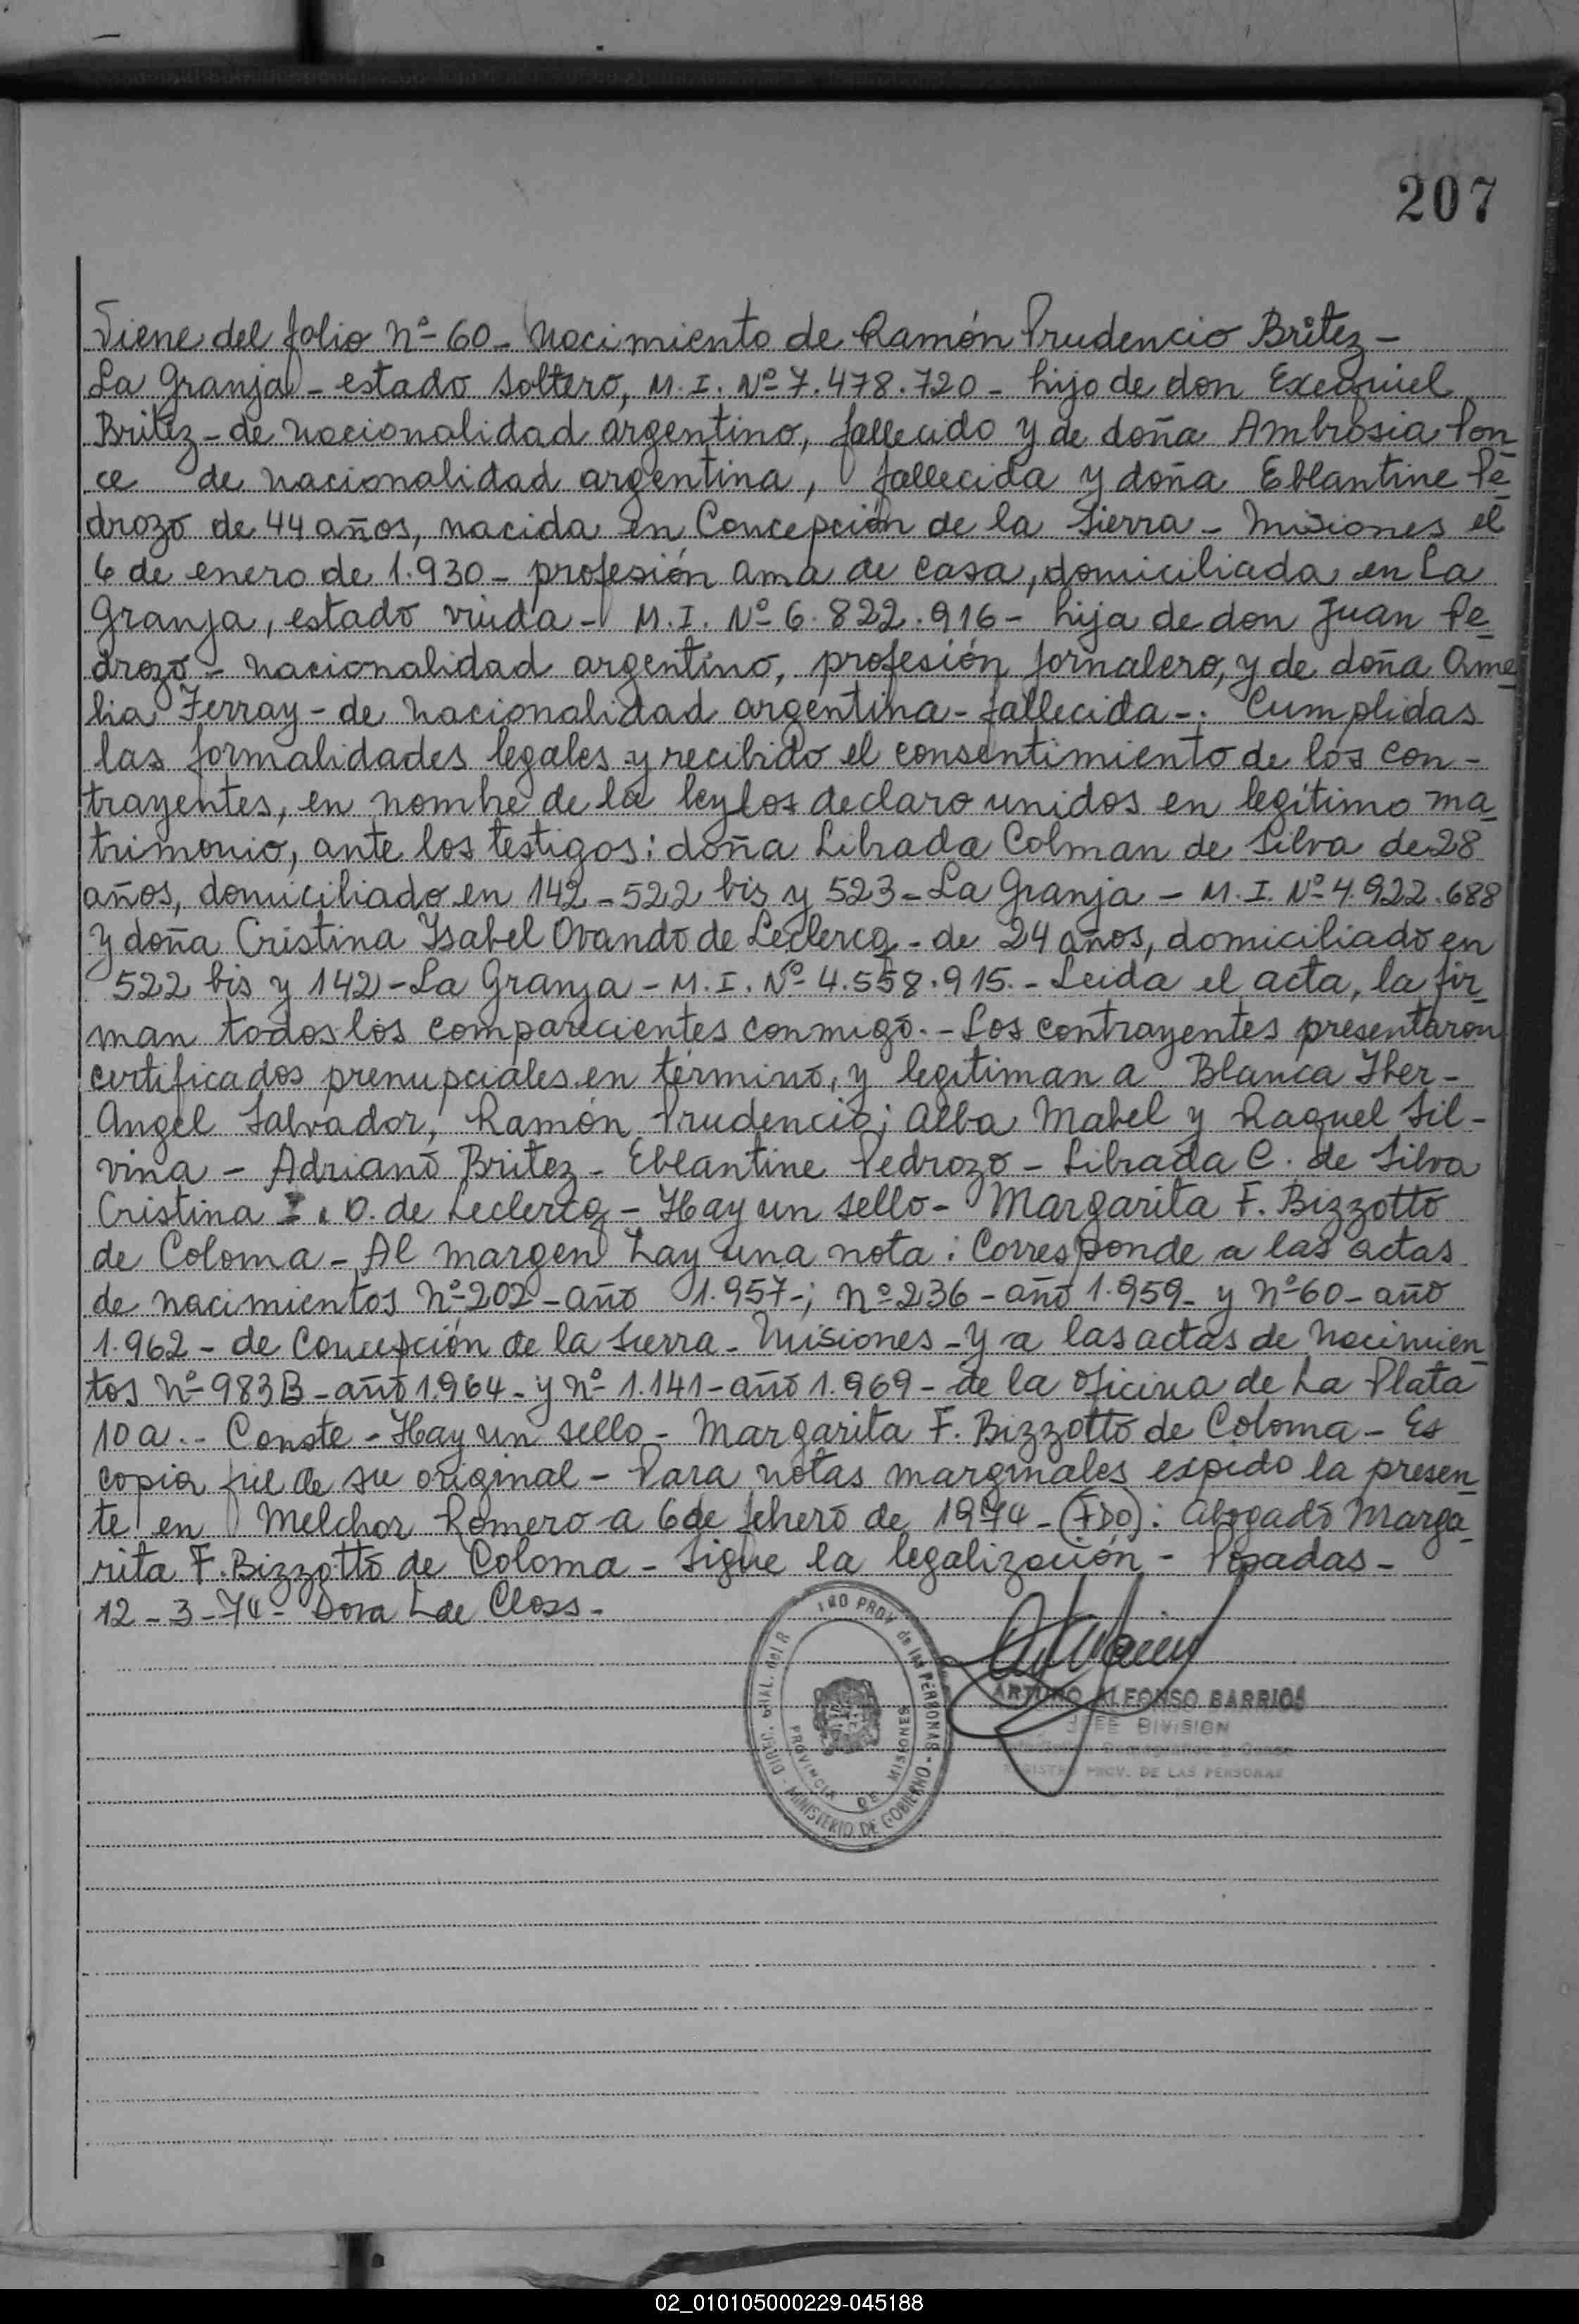 207
Viene del folio Nº 60 - Nacimiento de Ramón Prudencio Britez -
La Granja - estado soltero, M.I. Nº 7.478.720 - hijo de don Exequiel
Britez - de nacionalidad argentino, fallecido y de doña Ambrosia Pon
ce de nacionalidad argentina, fallecida y doña Eblantine Pe
drozo de 44 años, nacida en Concepción de la Sierra - Misiones el
6 de enero de 1.930 - profesión ama de casa, domiciliada en La
Granja, estado viuda - M.I. Nº 6.822.916 - hija de don Juan Pe
drozo - nacionalidad argentino, profesión jornalero, y de doña Ame
lia Ferray - de nacionalidad argentina - fallecida -. Cumplidas
las formalidades legales y recibido el consentimiento de los con -
trayentes, en nombre de la ley los declaro unidos en legítimo ma
trimonio, ante los testigos: doña Librada Colman de Silva de 28
años, domiciliado en 142 - 522 bis y 523 - La Granja - M.I. Nº 4.922.688
y doña Cristina Ysabel Ovando de Leclercq - de 24 años, domiciliado en
522 bis y 142 - La Granja - M.I. Nº 4.558.915. - Leida el acta, la fir
man todos los comparecientes conmigo. - Los contrayentes presentaron
certificados prenupciales en término, y legitiman a Blanca Yber -
Angel Salvador, Ramón Prudencio; Alba Mabel y Raquel Sil -
vina - Adriano Britez - Eblantine Pedrozo - Librada C. de Silva
Cristina I. O. de Leclercq - Hay un sello - Margarita F. Bizzotto
de Coloma - Al margen hay una nota: Corresponde a las actas
de nacimientos Nº 202 - año 1.957 -; Nº 236 - año 1.959 - y Nº 60 - año
1.962 - de Concepción de la Sierra - Misiones - y a las actas de Nacimien
tos Nº 983B - año 1.964 - y Nº 1.141 - año 1.969 - de la oficina de La Plata
10a. - Conste - Hay un sello - Margarita F. Bizzotto de Coloma - Es
copia fiel de su original - Para notas marginales expido la presen
te en Melchor Romero a 6 de febrero de 1974 - (FDO): Abogado Marga
rita F. Bizzotto de Coloma - Sigue la legalización - Posadas -
12 - 3 - 74 - Dora L de Closs -
DIREC. GRAL. del R PROV de las PERSONAS - MINISTERIO DE GOBIERNO -
PROVINCIA DE MISIONES
ARTURO ALFONSO BARRIOS
JEFE DIVISION
REGISTRO PROV. DE LAS PERSONAS
02_010105000229-045188